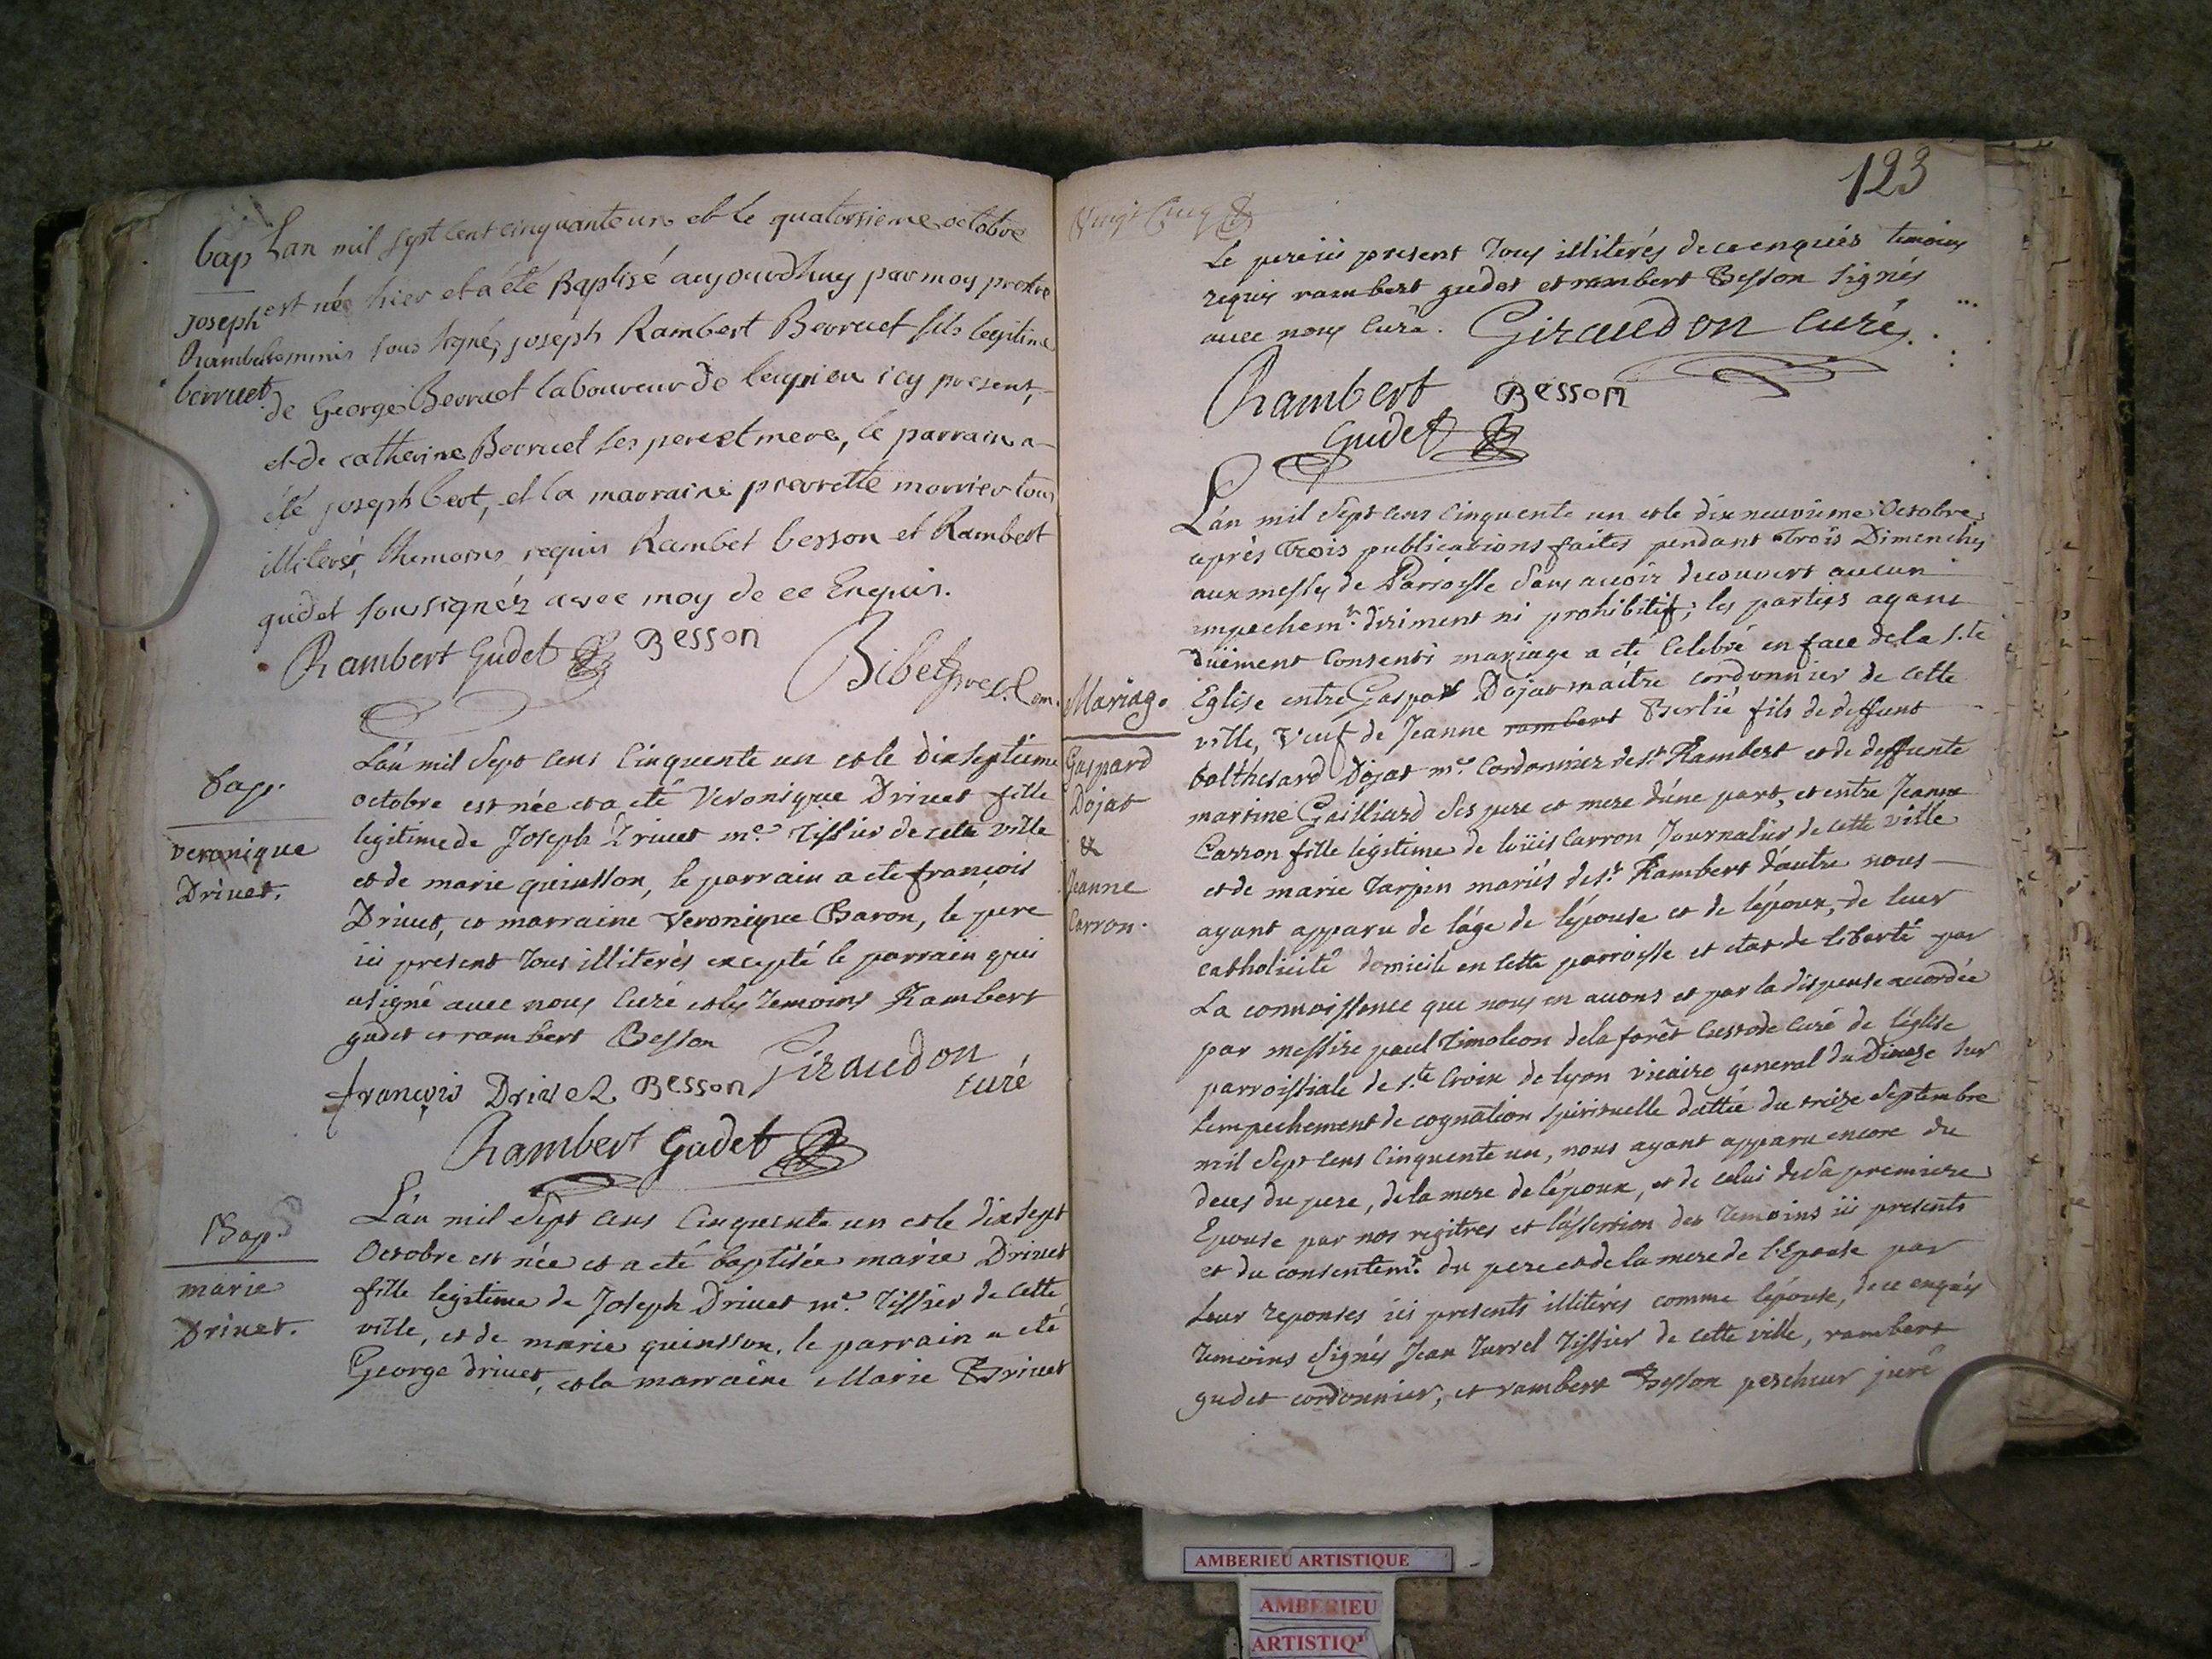 bap
Joseph
Rambert
berruet
Lan mil sept cent cinquanteun et le quatorsieme octobre
est née hier et a été Baptisé aujourdhuy par moy pretre
commis sous signé, joseph Rambert Berruet fils legitime
de George Berruet laboureur de leyrieu icy present,
et de catherine Berruet ses pere et mere, le parrain a
été joseph beot, et la marraine pierrette morrier tous
illiterés, themoins requis Rambet besson et Rambert
gudet soussignéz avec moy de ce Enquis.
Rambert Gudet Besson Bibet pre Com.
bap.
veronique
Drivet.
L'an mil Sept cens Cinquente un et le Dixseptieme
octobre est née et a été Veronique Drivet fille
legitime de Joseph Drivet me. Tissier de cette ville
et de marie quinsson, le parrain a ete françois
Drivet, et marraine Veronique Baron, le pere
ici present tous illiterés excepté le parrain qui
a signé avec nous Curé et les temoins Rambert
gudet et rambert Besson
françois Drivet Besson Giraudon
curé
Rambert Gudet
Bap.
marie
Drivet.
L'an mil Sept cens Cinquente un et le dixsept
Octobre est née et a été baptisée marie Drivet
fille legitime de Joseph Drivet me. Tissier de cette
ville, et de marie quinsson, le parrain a été
George drivet, et la marraine Marie Drivet
123
Vingt Cinq
Le pere ici present Tous illiterés de ce enquis temoins
requis rambert gudet et rambert Besson signés
avec nous Curé. Giraudon curé.
Rambert Besson
Gudet
Mariage
Gaspard
Dojat
&
Jeanne
Carron.
L'an mil Sept cens Cinquente un et le dix neuvieme Octobre
après Trois publications faites pendant Trois Dimenches
aux messes de Parroisse sans avoir decouvert aucun
empechemt. diriment ni prohibitif; les parties ayant
düement Consenti mariage a eté Celebré en face de la Ste
Eglise entre Gaspar Dojat maître cordonnier de cette
ville, Veuf de Jeanne rambert Berlié fils de deffunt
balthesard Dojat me. Cordonnier de st. Rambert et de deffunte
martine Gailliard ses pere et mere d'une part, et entre Jeanne
Carron fille légitime de loüis Carron Journalier de cette ville
et de marie Tarpin mariés de st. Rambert d'autre nous
ayant apparu de l'âge de l'épouse et de l'époux, de leur
catholicité domicile en cette parroisse et etat de liberté par
La connoissance que nous en avons et par la dispense accordée
par messire paul Timoleon de la forêt Custode Curé de l'église
parroissiale de ste. Croix de lyon vicaire general du Diocese sur
l'empechement de cognation spirituelle dattée du treize Septembre
mil Sept cens Cinquente un, nous ayant apparu encore du
deces du pere, de la mere de l'époux, et de celui de sa premiere
Epouse par nos regitres et l'assertion des temoins ici presents
et du consentemt. du pere et de la mere de l'Epouse par
leur reponses ici presents illiterés comme l'épouse, de ce enquis
temoins signés Jean Turrel Tissier de cette ville, rambert
gudet cordonnier, et rambert Besson pescheur juré
AMBERIEU ARTISTIQUE
AMBERIEU
ARTISTIQ